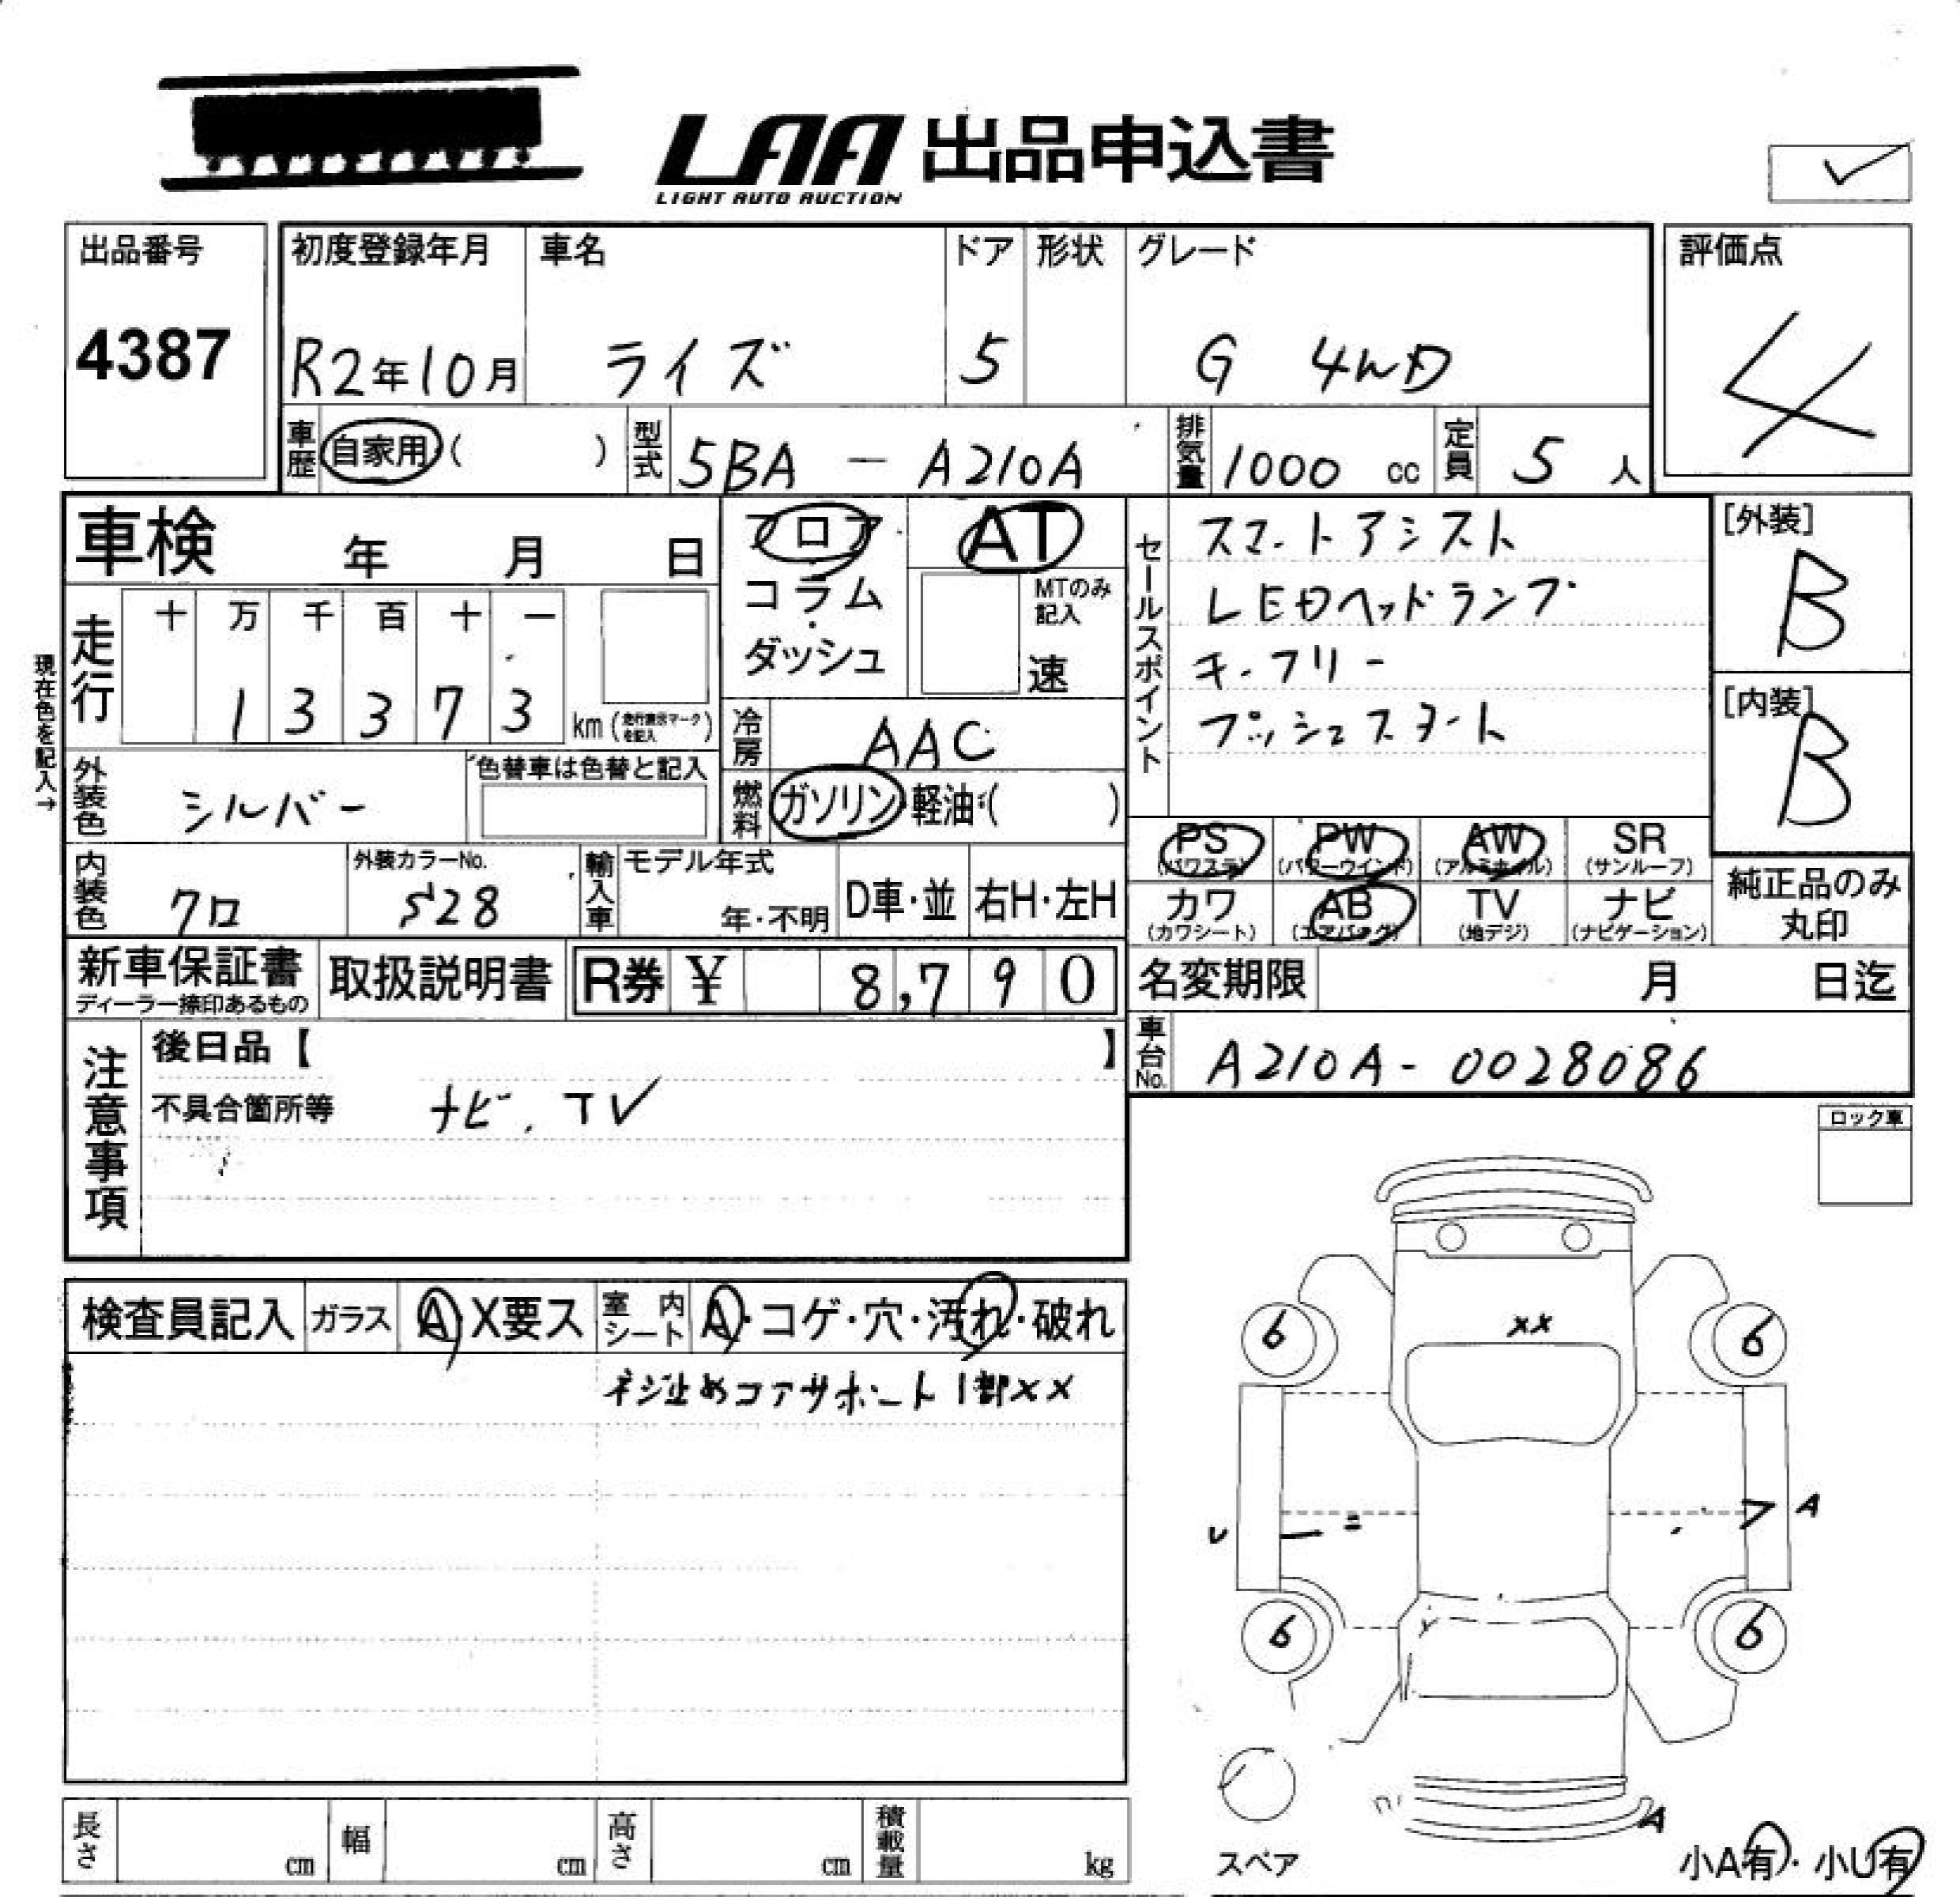 LAA 出品申込書
LIGHT AUTO AUCTION
出品番号
4387
初度登録年月
R2年10月
車名
ライズ
ドア
5
形状
グレード
G 4WD
評価点
4
車歴 自家用( )
型式 5BA - A210A
排気量 1000 cc
定員 5 人
車検 年 月 日
フロア
コラム
ダッシュ
AT
MTのみ記入
速
セールスポイント
スマートアシスト
LEDヘッドランプ
キーフリー
プッシュスタート
[外装]
B
[内装]
B
現在色を記入→
走行
十 万 千 百 十 一
1 3 3 7 3
km(走行表示マークを記入)
冷房 AAC
外装色 シルバー
色替車は色替と記入
燃料 ガソリン・軽油・( )
PS (パワステ)
PW (パワーウインド)
AW (アルミホイル)
SR (サンルーフ)
カワ (カワシート)
AB (エアバッグ)
TV (地デジ)
ナビ (ナビゲーション)
純正品のみ丸印
内装色 クロ
外装カラーNo.
S28
輸入車
モデル年式
年・不明
D車・並
右H・左H
新車保証書
ディーラー捺印あるもの
取扱説明書
R券 ¥ 8,790
名変期限 月 日迄
車台No. A210A-0028086
注意事項
後日品【 】
不具合箇所等 ナビ、TV
ロック車
検査員記入 ガラス A X要ス
室内シート A・コゲ・穴・汚れ・破れ
ネジ止めコアサポート1部××
××
6 6
U
A
6 6
A
スペア
小A有・小U有
長さ cm
幅 cm
高さ cm
積載量 kg